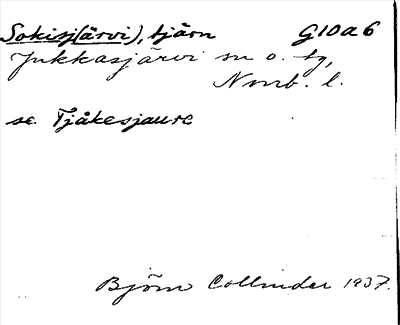 Sokisj(ärvi), tjärn G10a6
Jukkasjärvi sn o. tg,
Nmb. l.
se Tjåkesjaure
Björn Collinder 1937.